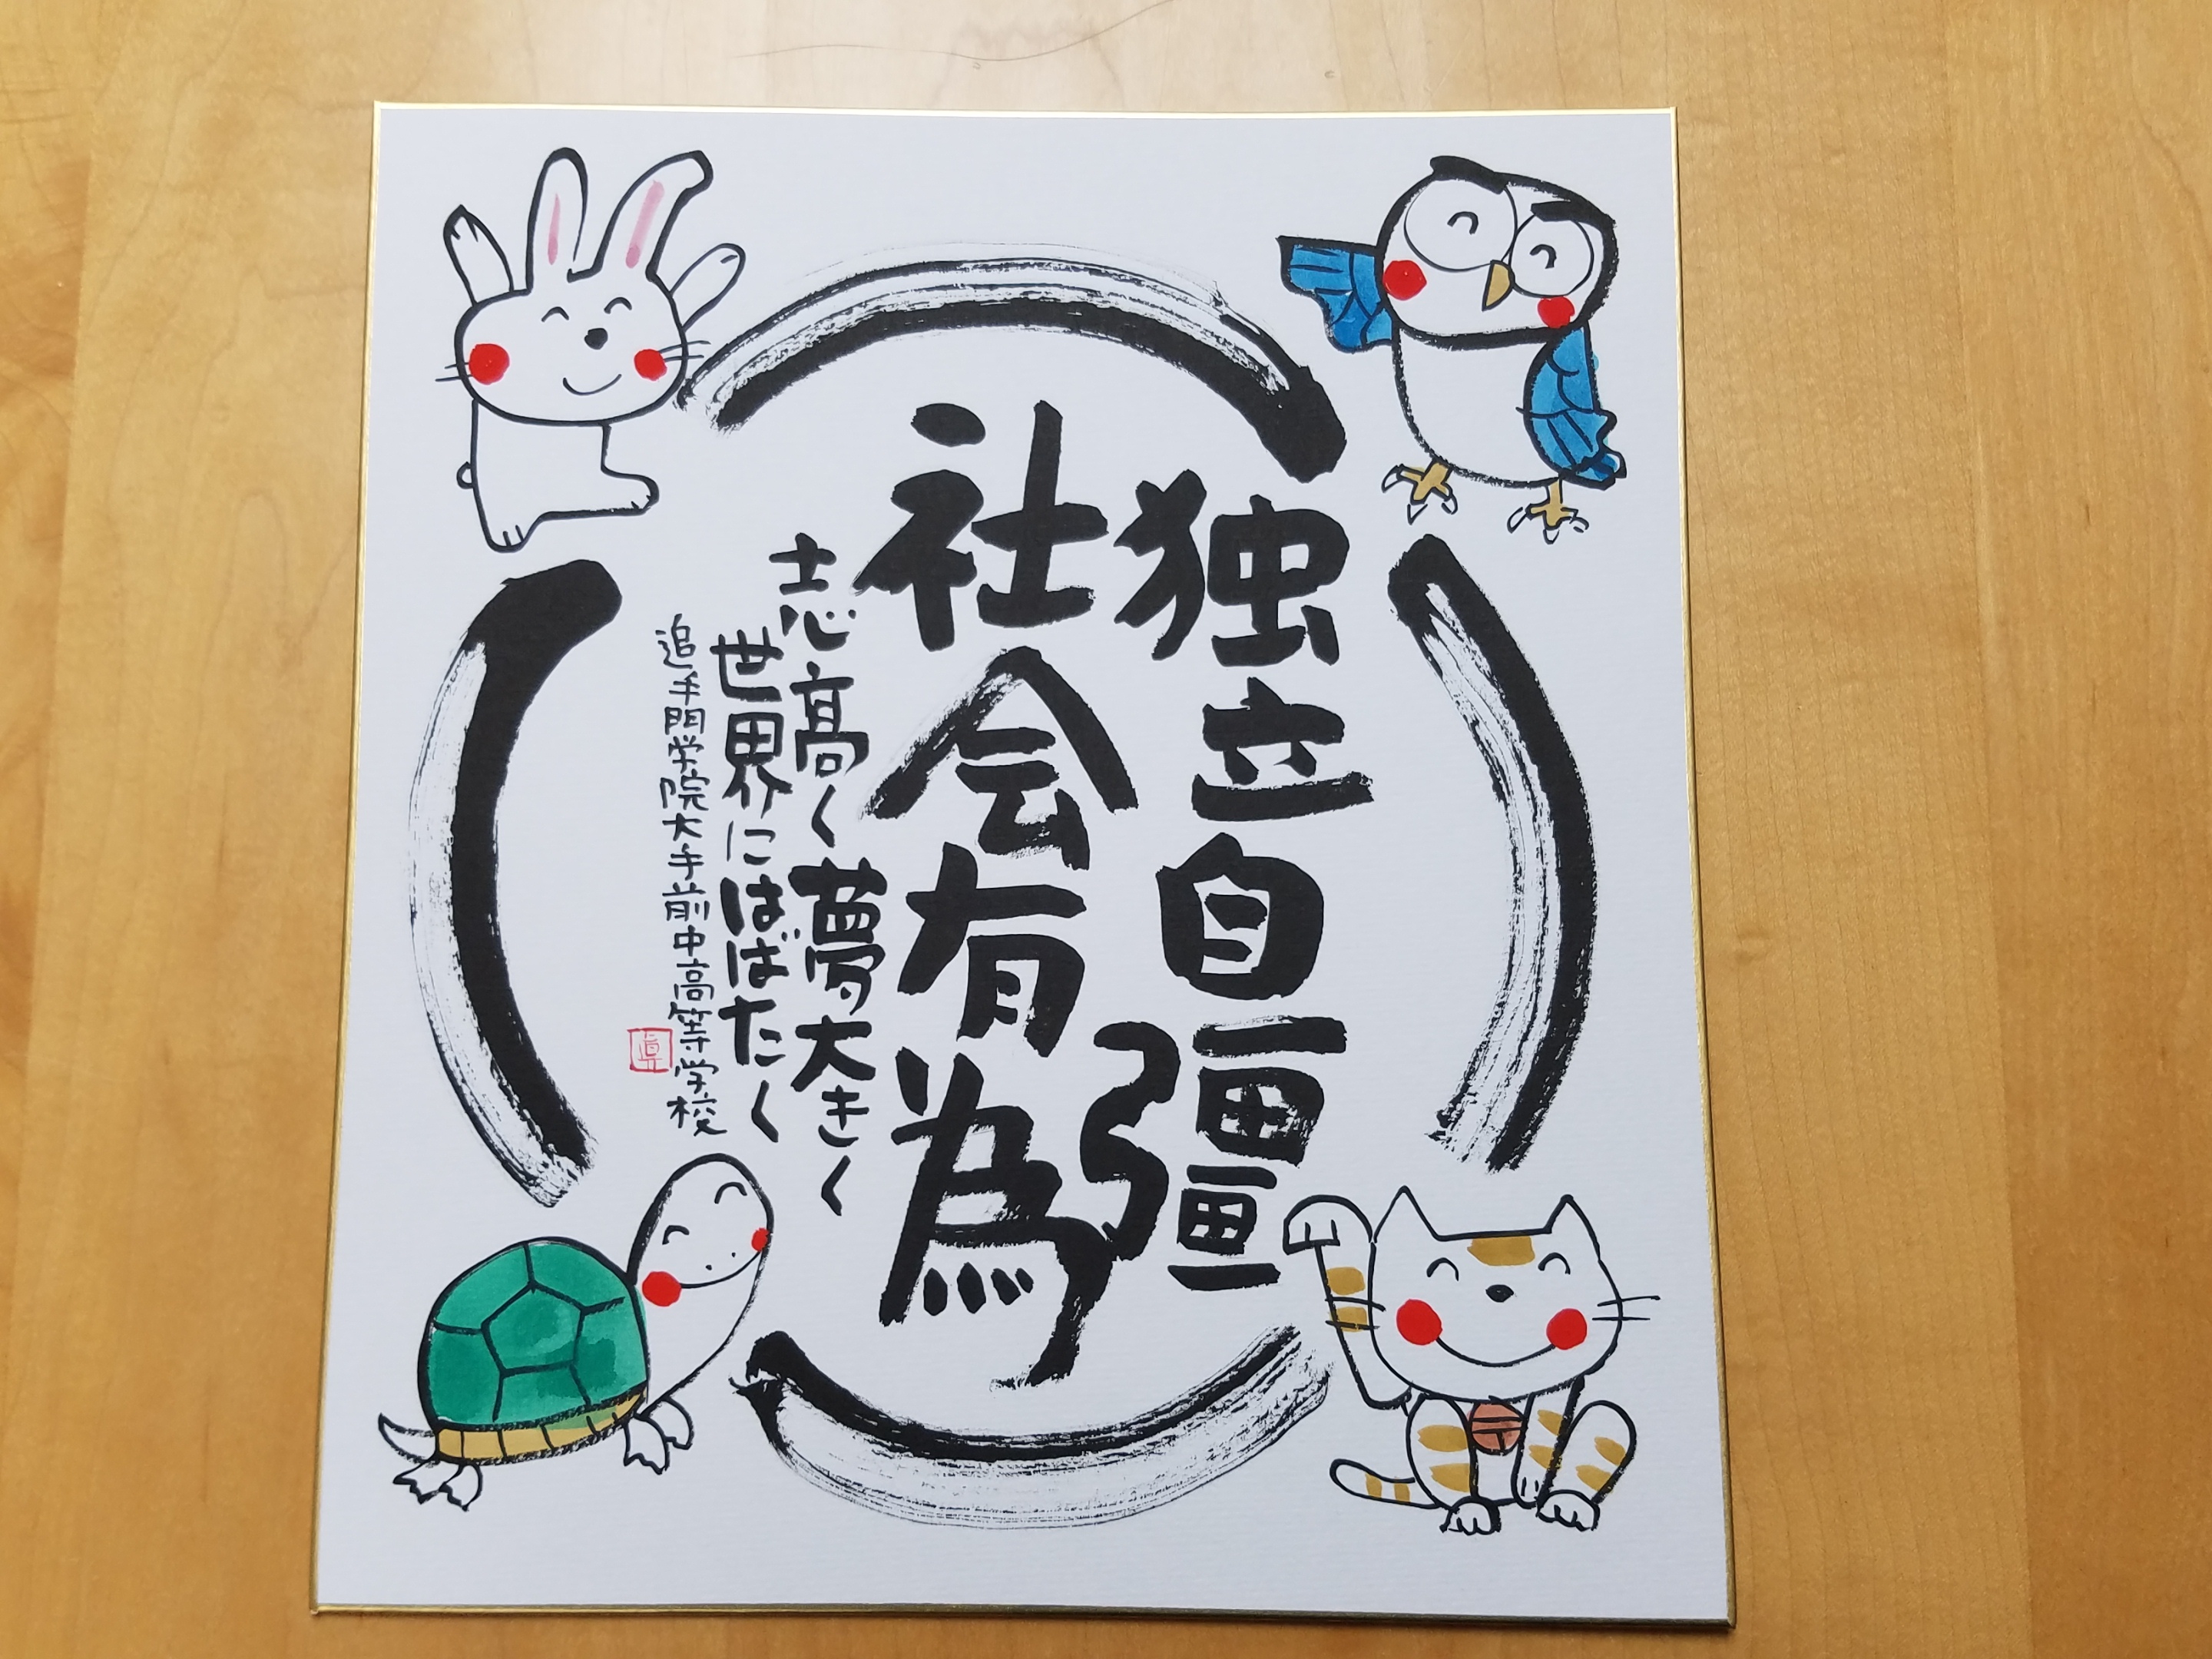 独立自彊
社会有為
志高く夢大きく
世界にはばたく
追手門学院大手前中高等学校
眞